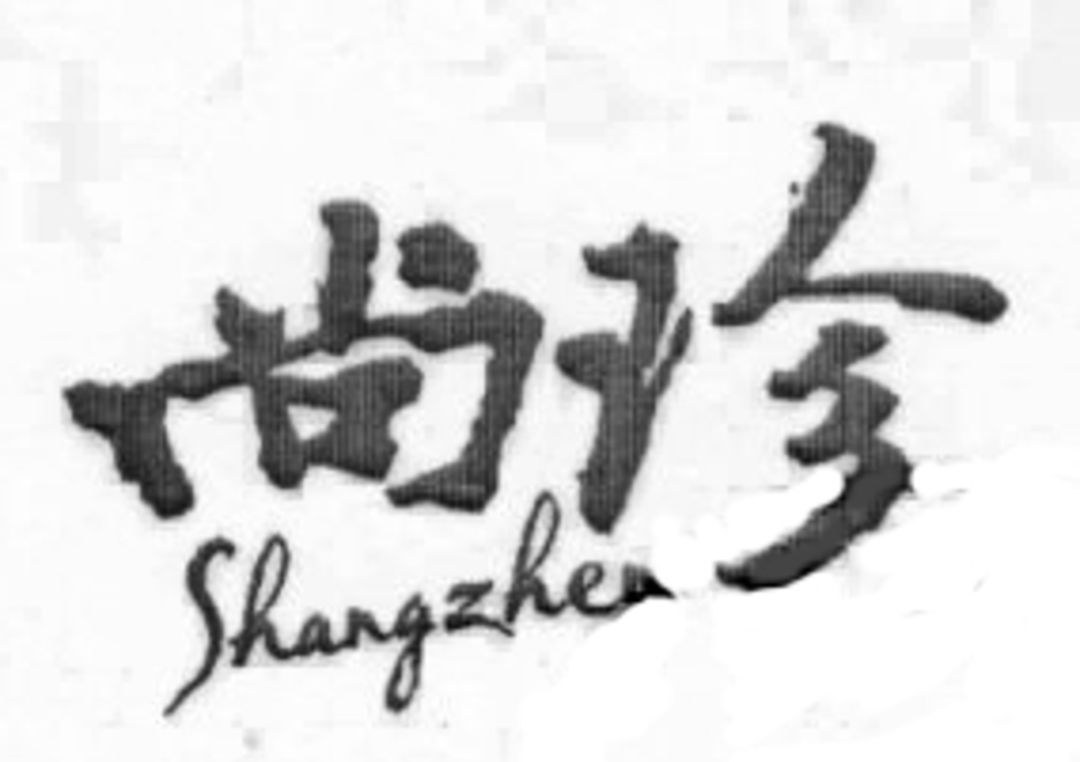 尚珍
Shangzhen